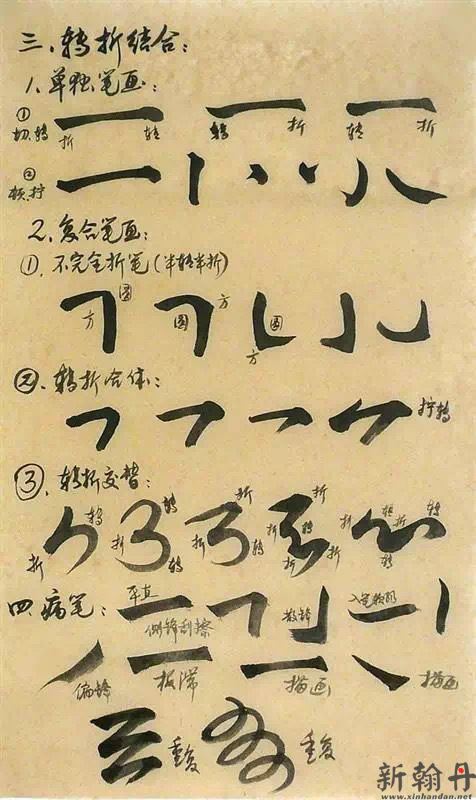 三、转折结合：
1、单独笔画：
① 切、转 折 转 转 折 转 折
② 顿、拧
2、复合笔画：
①、不完全折笔（半转半折）
方 圆 圆 方 圆 方
②、转折合体：
拧转
③、转折交替：
折 转 折 转 转 折 折 转 折 折 转 折 折 折 转 折 转 转
四、病笔：
平直 侧锋刮擦 散锋
偏锋 板滞 描画 描画
重复 重复
新翰丹
www.xinhandan.net